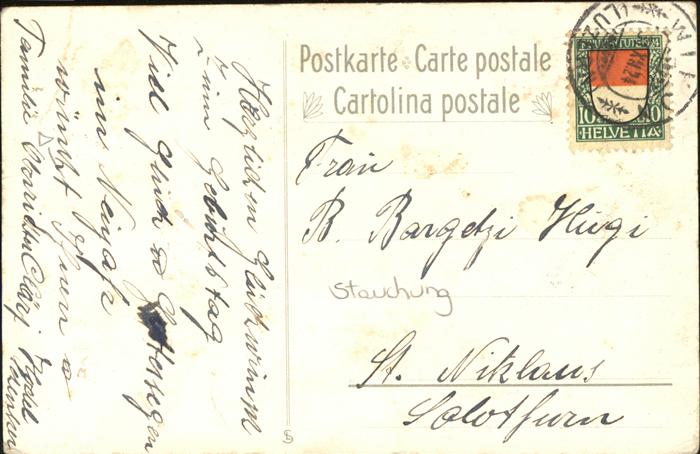 Herzlichen Glückwunsch
zum Geburtstag
Viel Glück u Gottessegen
im Neujahr
wünscht Ihnen
Familie
Postkarte Carte postale
Cartolina postale
PRO JUVENTUTE
10 10
HELVETIA
Frau
B. Bargetzi Hugi
Stauchung
St. Niklaus
Solothurn